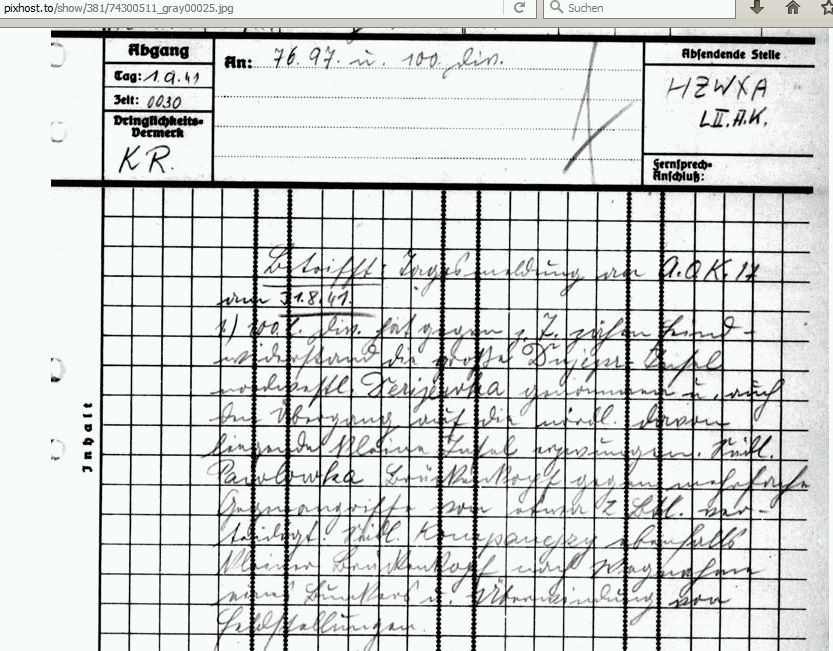 pixhost.to/show/381/74300511_gray00025.jpg
Suchen
Abgang
Tag: 1.9.41
Zeit: 0030
Dringlichkeits-
Vermerk
KR.
An: 76. 97. u. 100. Div.
Absendende Stelle
HZWXA
LII.A.K.
Fernsprech-
Anschluß:
Inhalt
Betrifft: Tagesmeldung an A.O.K. 17
am 31.8.41.
1.) 100. l. Div. hat gegen z. T. zähen Feind-
widerstand die große Dnjepr-Insel
nordwestl. Derijewka genommen u. auch
den Übergang auf die nördl. davon
liegende kleine Insel erzwungen. Südl.
Pawlowka Brückenkopf gegen mehrfache
Gegenangriffe von etwa 2 Btl. ver-
teidigt. Südl. Kompanejzy ebenfalls
kleiner Brückenkopf nach Wegnahme
eines Bunkers u. Überwindung von
Feldstellungen.